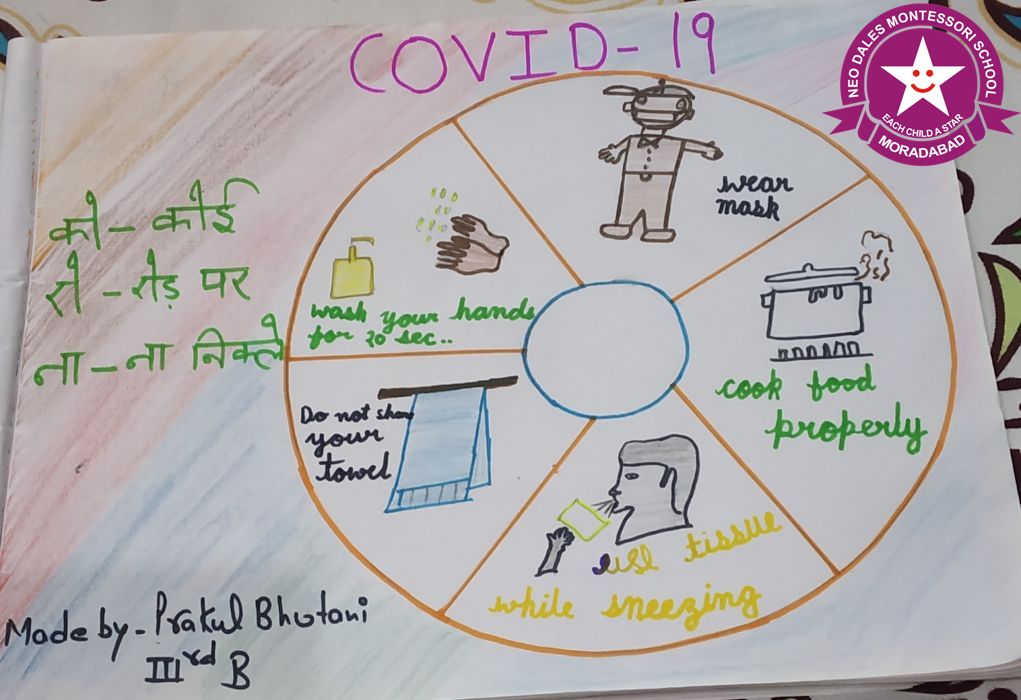 COVID-19
NEO DALES MONTESSORI SCHOOL
EACH CHILD A STAR
MORADABAD
को - कोई
रो - रोड़ पर
ना - ना निक्ले
wear
mask
wash your hands
for 20 sec..
cook food
properly
Do not share
your
towel
use tissue
while sneezing
Made by - Prakul Bhutani
IIIrd B